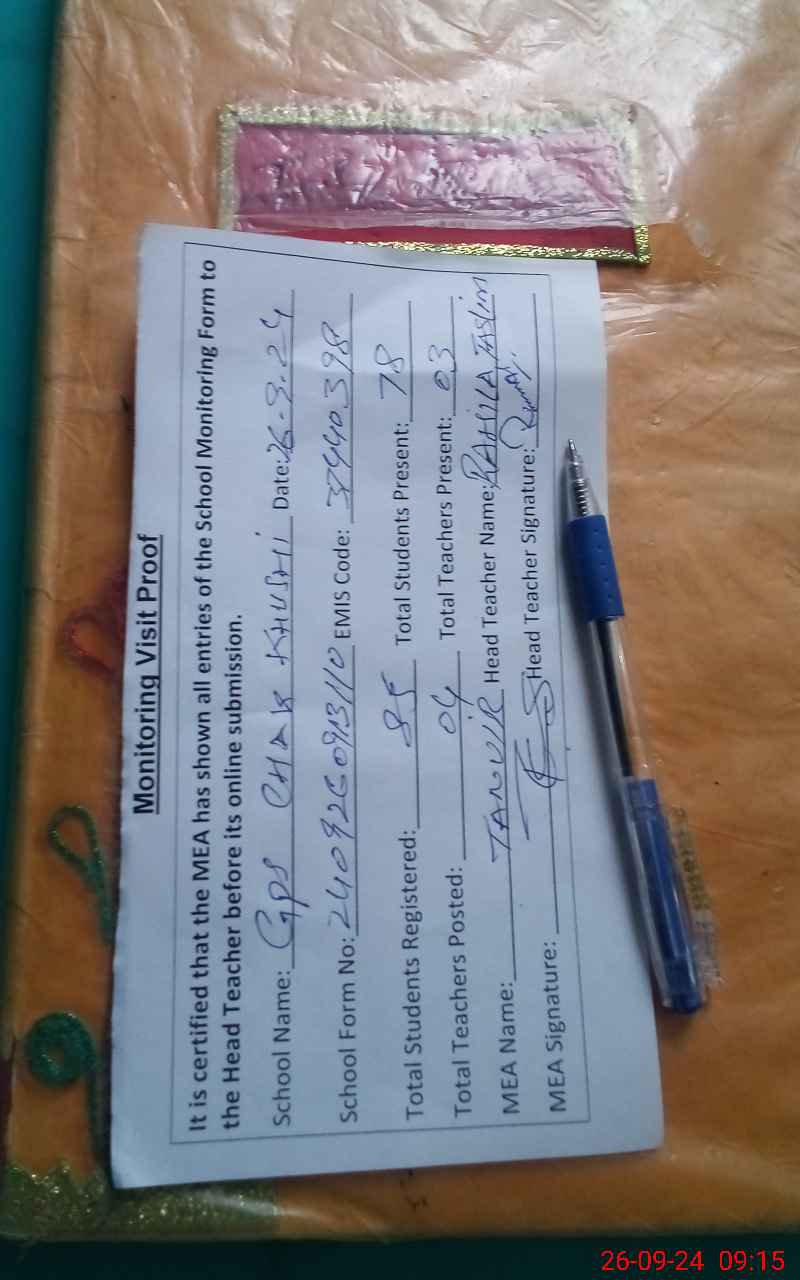 Monitoring Visit Proof
It is certified that the MEA has shown all entries of the School Monitoring Form to
the Head Teacher before its online submission.
School Name: GPS CHAK KHUSHI Date: 26-9-24
School Form No: 240926091311O EMIS Code: 37440398
Total Students Registered: 85 Total Students Present: 78
Total Teachers Posted: 04 Total Teachers Present: 03
MEA Name: TANVIR Head Teacher Name: RAHILA TASLIM
MEA Signature: Head Teacher Signature:
26-09-24 09:15